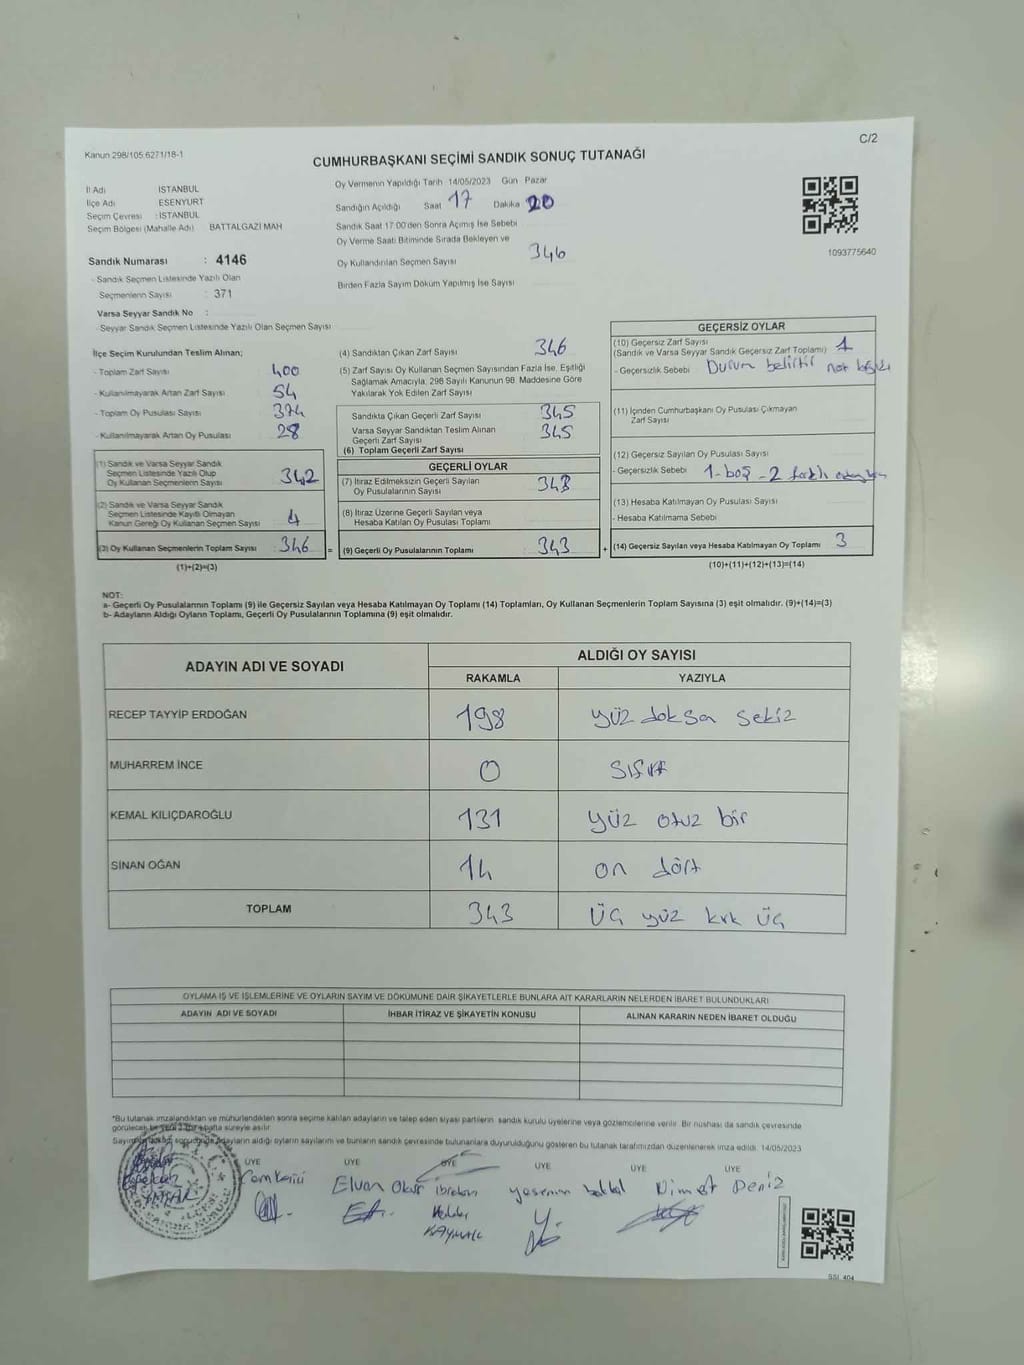 Kanun 298/105.6271/18-1
C/2
CUMHURBAŞKANI SEÇİMİ SANDIK SONUÇ TUTANAĞI
İl Adı : İSTANBUL
İlçe Adı : ESENYURT
Seçim Çevresi : İSTANBUL
Seçim Bölgesi (Mahalle Adı) BATTALGAZİ MAH
Sandık Numarası : 4146
- Sandık Seçmen Listesinde Yazılı Olan
Seçmenlerin Sayısı : 371
Varsa Seyyar Sandık No :
- Seyyar Sandık Seçmen Listesinde Yazılı Olan Seçmen Sayısı
Oy Vermenin Yapıldığı Tarih 14/05/2023 Gün Pazar
Sandığın Açıldığı Saat 17 Dakika 20
Sandık Saat 17:00'den Sonra Açımış İse Sebebi
Oy Verme Saati Bitiminde Sırada Bekleyen ve
Oy Kullandırılan Seçmen Sayısı 346
Birden Fazla Sayım Döküm Yapılmış İse Sayısı
1093775640
İlçe Seçim Kurulundan Teslim Alınan;
- Toplam Zarf Sayısı 400
- Kullanılmayarak Artan Zarf Sayısı 54
- Toplam Oy Pusulası Sayısı 374
- Kullanılmayarak Artan Oy Pusulası 28
(1) Sandık ve Varsa Seyyar Sandık
Seçmen Listesinde Yazılı Olup
Oy Kullanan Seçmenlerin Sayısı 342
(2) Sandık ve Varsa Seyyar Sandık
Seçmen Listesinde Kayıtlı Olmayan
Kanun Gereği Oy Kullanan Seçmen Sayısı 4
(3) Oy Kullanan Seçmenlerin Toplam Sayısı 346 =
(1)+(2)=(3)
(4) Sandıktan Çıkan Zarf Sayısı 346
(5) Zarf Sayısı Oy Kullanan Seçmen Sayısından Fazla İse, Eşitliği
Sağlamak Amacıyla, 298 Sayılı Kanunun 98. Maddesine Göre
Yakılarak Yok Edilen Zarf Sayısı
Sandıkta Çıkan Geçerli Zarf Sayısı 345
Varsa Seyyar Sandıktan Teslim Alınan
Geçerli Zarf Sayısı 345
(6) Toplam Geçerli Zarf Sayısı
GEÇERLİ OYLAR
(7) İtiraz Edilmeksizin Geçerli Sayılan
Oy Pusulalarının Sayısı 343
(8) İtiraz Üzerine Geçerli Sayılan veya
Hesaba Katılan Oy Pusulası Toplamı
(9) Geçerli Oy Pusulalarının Toplamı 343 +
GEÇERSİZ OYLAR
(10) Geçersiz Zarf Sayısı
(Sandık ve Varsa Seyyar Sandık Geçersiz Zarf Toplamı) 1
- Geçersizlik Sebebi Durum belirtir not
(11) İçinden Cumhurbaşkanı Oy Pusulası Çıkmayan
Zarf Sayısı
(12) Geçersiz Sayılan Oy Pusulası Sayısı
- Geçersizlik Sebebi 1-boş - 2 farklı
(13) Hesaba Katılmayan Oy Pusulası Sayısı
- Hesaba Katılmama Sebebi
(14) Geçersiz Sayılan veya Hesaba Katılmayan Oy Toplamı 3
(10)+(11)+(12)+(13)=(14)
NOT:
a- Geçerli Oy Pusulalarının Toplamı (9) ile Geçersiz Sayılan veya Hesaba Katılmayan Oy Toplamı (14) Toplamları, Oy Kullanan Seçmenlerin Toplam Sayısına (3) eşit olmalıdır. (9)+(14)=(3)
b- Adayların Aldığı Oyların Toplamı, Geçerli Oy Pusulalarının Toplamına (9) eşit olmalıdır.
ADAYIN ADI VE SOYADI ALDIĞI OY SAYISI
RAKAMLA YAZIYLA
RECEP TAYYİP ERDOĞAN 198 yüz doksan sekiz
MUHARREM İNCE 0 sıfır
KEMAL KILIÇDAROĞLU 131 yüz otuz bir
SİNAN OĞAN 14 on dört
TOPLAM 343 üç yüz kırk üç
OYLAMA İŞ VE İŞLEMLERİNE VE OYLARIN SAYIM VE DÖKÜMÜNE DAİR ŞİKAYETLERLE BUNLARA AİT KARARLARIN NELERDEN İBARET BULUNDUKLARI
ADAYIN ADI VE SOYADI İHBAR İTİRAZ VE ŞİKAYETİN KONUSU ALINAN KARARIN NEDEN İBARET OLDUĞU
*Bu tutanak imzalandıktan ve mühürlendikten sonra seçime katılan adayların ve talep eden siyasi partilerin sandık kurulu üyelerine veya gözlemcilerine verilir. Bir nüshası da sandık çevresinde
görülecek bir yere 1 hafta süreyle asılır.
sonucunda adayların aldığı oyların sayılarını ve bunların sandık çevresinde bulunanlara duyurulduğunu gösteren bu tutanak tarafımızdan düzenlenerek imza edildi. 14/05/2023
ÜYE ÜYE ÜYE ÜYE ÜYE ÜYE
Elvan Okur İbrahim Yasemin Nimet Deniz
SSİ. 404